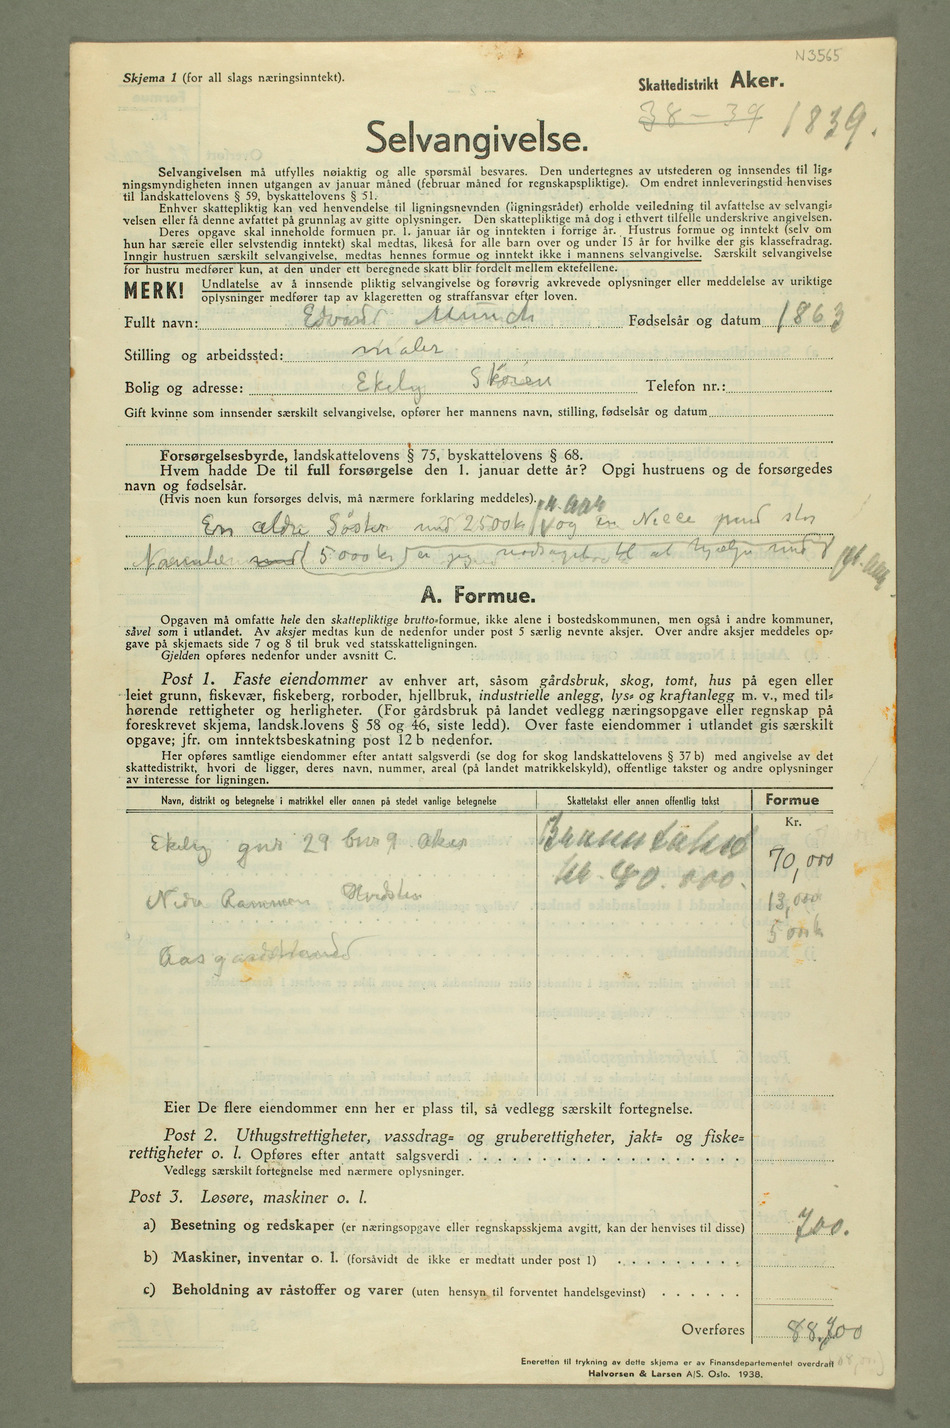 N3565
Skjema 1 (for all slags næringsinntekt).
Skattedistrikt Aker.
38-39 1839.
Selvangivelse.
Selvangivelsen må utfylles nøiaktig og alle spørsmål besvares. Den undertegnes av utstederen og innsendes til lig=
ningsmyndigheten innen utgangen av januar måned (februar måned for regnskapspliktige). Om endret innleveringstid henvises
til landskattelovens § 59, byskattelovens § 51.
Enhver skattepliktig kan ved henvendelse til ligningsnevnden (ligningsrådet) erholde veiledning til avfattelse av selvangi=
velsen eller få denne avfattet på grunnlag av gitte oplysninger. Den skattepliktige må dog i ethvert tilfelle underskrive angivelsen.
Deres opgave skal inneholde formuen pr. 1. januar iår og inntekten i forrige år. Hustrus formue og inntekt (selv om
hun har særeie eller selvstendig inntekt) skal medtas, likeså for alle barn over og under 15 år for hvilke der gis klassefradrag.
Inngir hustruen særskilt selvangivelse, medtas hennes formue og inntekt ikke i mannens selvangivelse. Særskilt selvangivelse
for hustru medfører kun, at den under ett beregnede skatt blir fordelt mellem ektefellene.
MERK! Undlatelse av å innsende pliktig selvangivelse og forøvrig avkrevede oplysninger eller meddelelse av uriktige
oplysninger medfører tap av klageretten og straffansvar efter loven.
Fullt navn: Edvard Munch Fødselsår og datum 1863
Stilling og arbeidssted: maler
Bolig og adresse: Ekely Skøien Telefon nr.:
Gift kvinne som innsender særskilt selvangivelse, opfører her mannens navn, stilling, fødselsår og datum
Forsørgelsesbyrde, landskattelovens § 75, byskattelovens § 68.
Hvem hadde De til full forsørgelse den 1. januar dette år? Opgi hustruens og de forsørgedes
navn og fødselsår.
(Hvis noen kun forsørges delvis, må nærmere forklaring meddeles).
En ældre Søster med 2500 kr og en Niece med stor
(5000 kr) er jeg nødsaget til at hjælpe med
A. Formue.
Opgaven må omfatte hele den skattepliktige brutto=formue, ikke alene i bostedskommunen, men også i andre kommuner,
såvel som i utlandet. Av aksjer medtas kun de nedenfor under post 5 særlig nevnte aksjer. Over andre aksjer meddeles op=
gave på skjemaets side 7 og 8 til bruk ved statsskatteligningen.
Gjelden opføres nedenfor under avsnitt C.
Post 1. Faste eiendommer av enhver art, såsom gårdsbruk, skog, tomt, hus på egen eller
leiet grunn, fiskevær, fiskeberg, rorboder, hjellbruk, industrielle anlegg, lys= og kraftanlegg m. v., med til=
hørende rettigheter og herligheter. (For gårdsbruk på landet vedlegg næringsopgave eller regnskap på
foreskrevet skjema, landsk.lovens § 58 og 46, siste ledd). Over faste eiendommer i utlandet gis særskilt
opgave; jfr. om inntektsbeskatning post 12 b nedenfor.
Her opføres samtlige eiendommer efter antatt salgsverdi (se dog for skog landskattelovens § 37 b) med angivelse av det
skattedistrikt, hvori de ligger, deres navn, nummer, areal (på landet matrikkelskyld), offentlige takster og andre oplysninger
av interesse for ligningen.
Navn, distrikt og betegnelse i matrikkel eller annen på stedet vanlige betegnelse Skattetakst eller annen offentlig takst Formue
Kr.
Ekely gnr 29 bnr 9 Aker Branntakst 70,000
kr. 40.000.
Nedre Rammen Hvidsten 13,000
5000
Aasgaardstrand
Eier De flere eiendommer enn her er plass til, så vedlegg særskilt fortegnelse.
Post 2. Uthugstrettigheter, vassdrag= og gruberettigheter, jakt= og fiske=
rettigheter o. l. Opføres efter antatt salgsverdi
Vedlegg særskilt fortegnelse med nærmere oplysninger.
Post 3. Løsøre, maskiner o. l.
a) Besetning og redskaper (er næringsopgave eller regnskapsskjema avgitt, kan der henvises til disse) 700.
b) Maskiner, inventar o. l. (forsåvidt de ikke er medtatt under post 1)
c) Beholdning av råstoffer og varer (uten hensyn til forventet handelsgevinst)
Overføres 88.700
Eneretten til trykning av dette skjema er av Finansdepartementet overdratt
Halvorsen & Larsen A/S. Oslo. 1938.